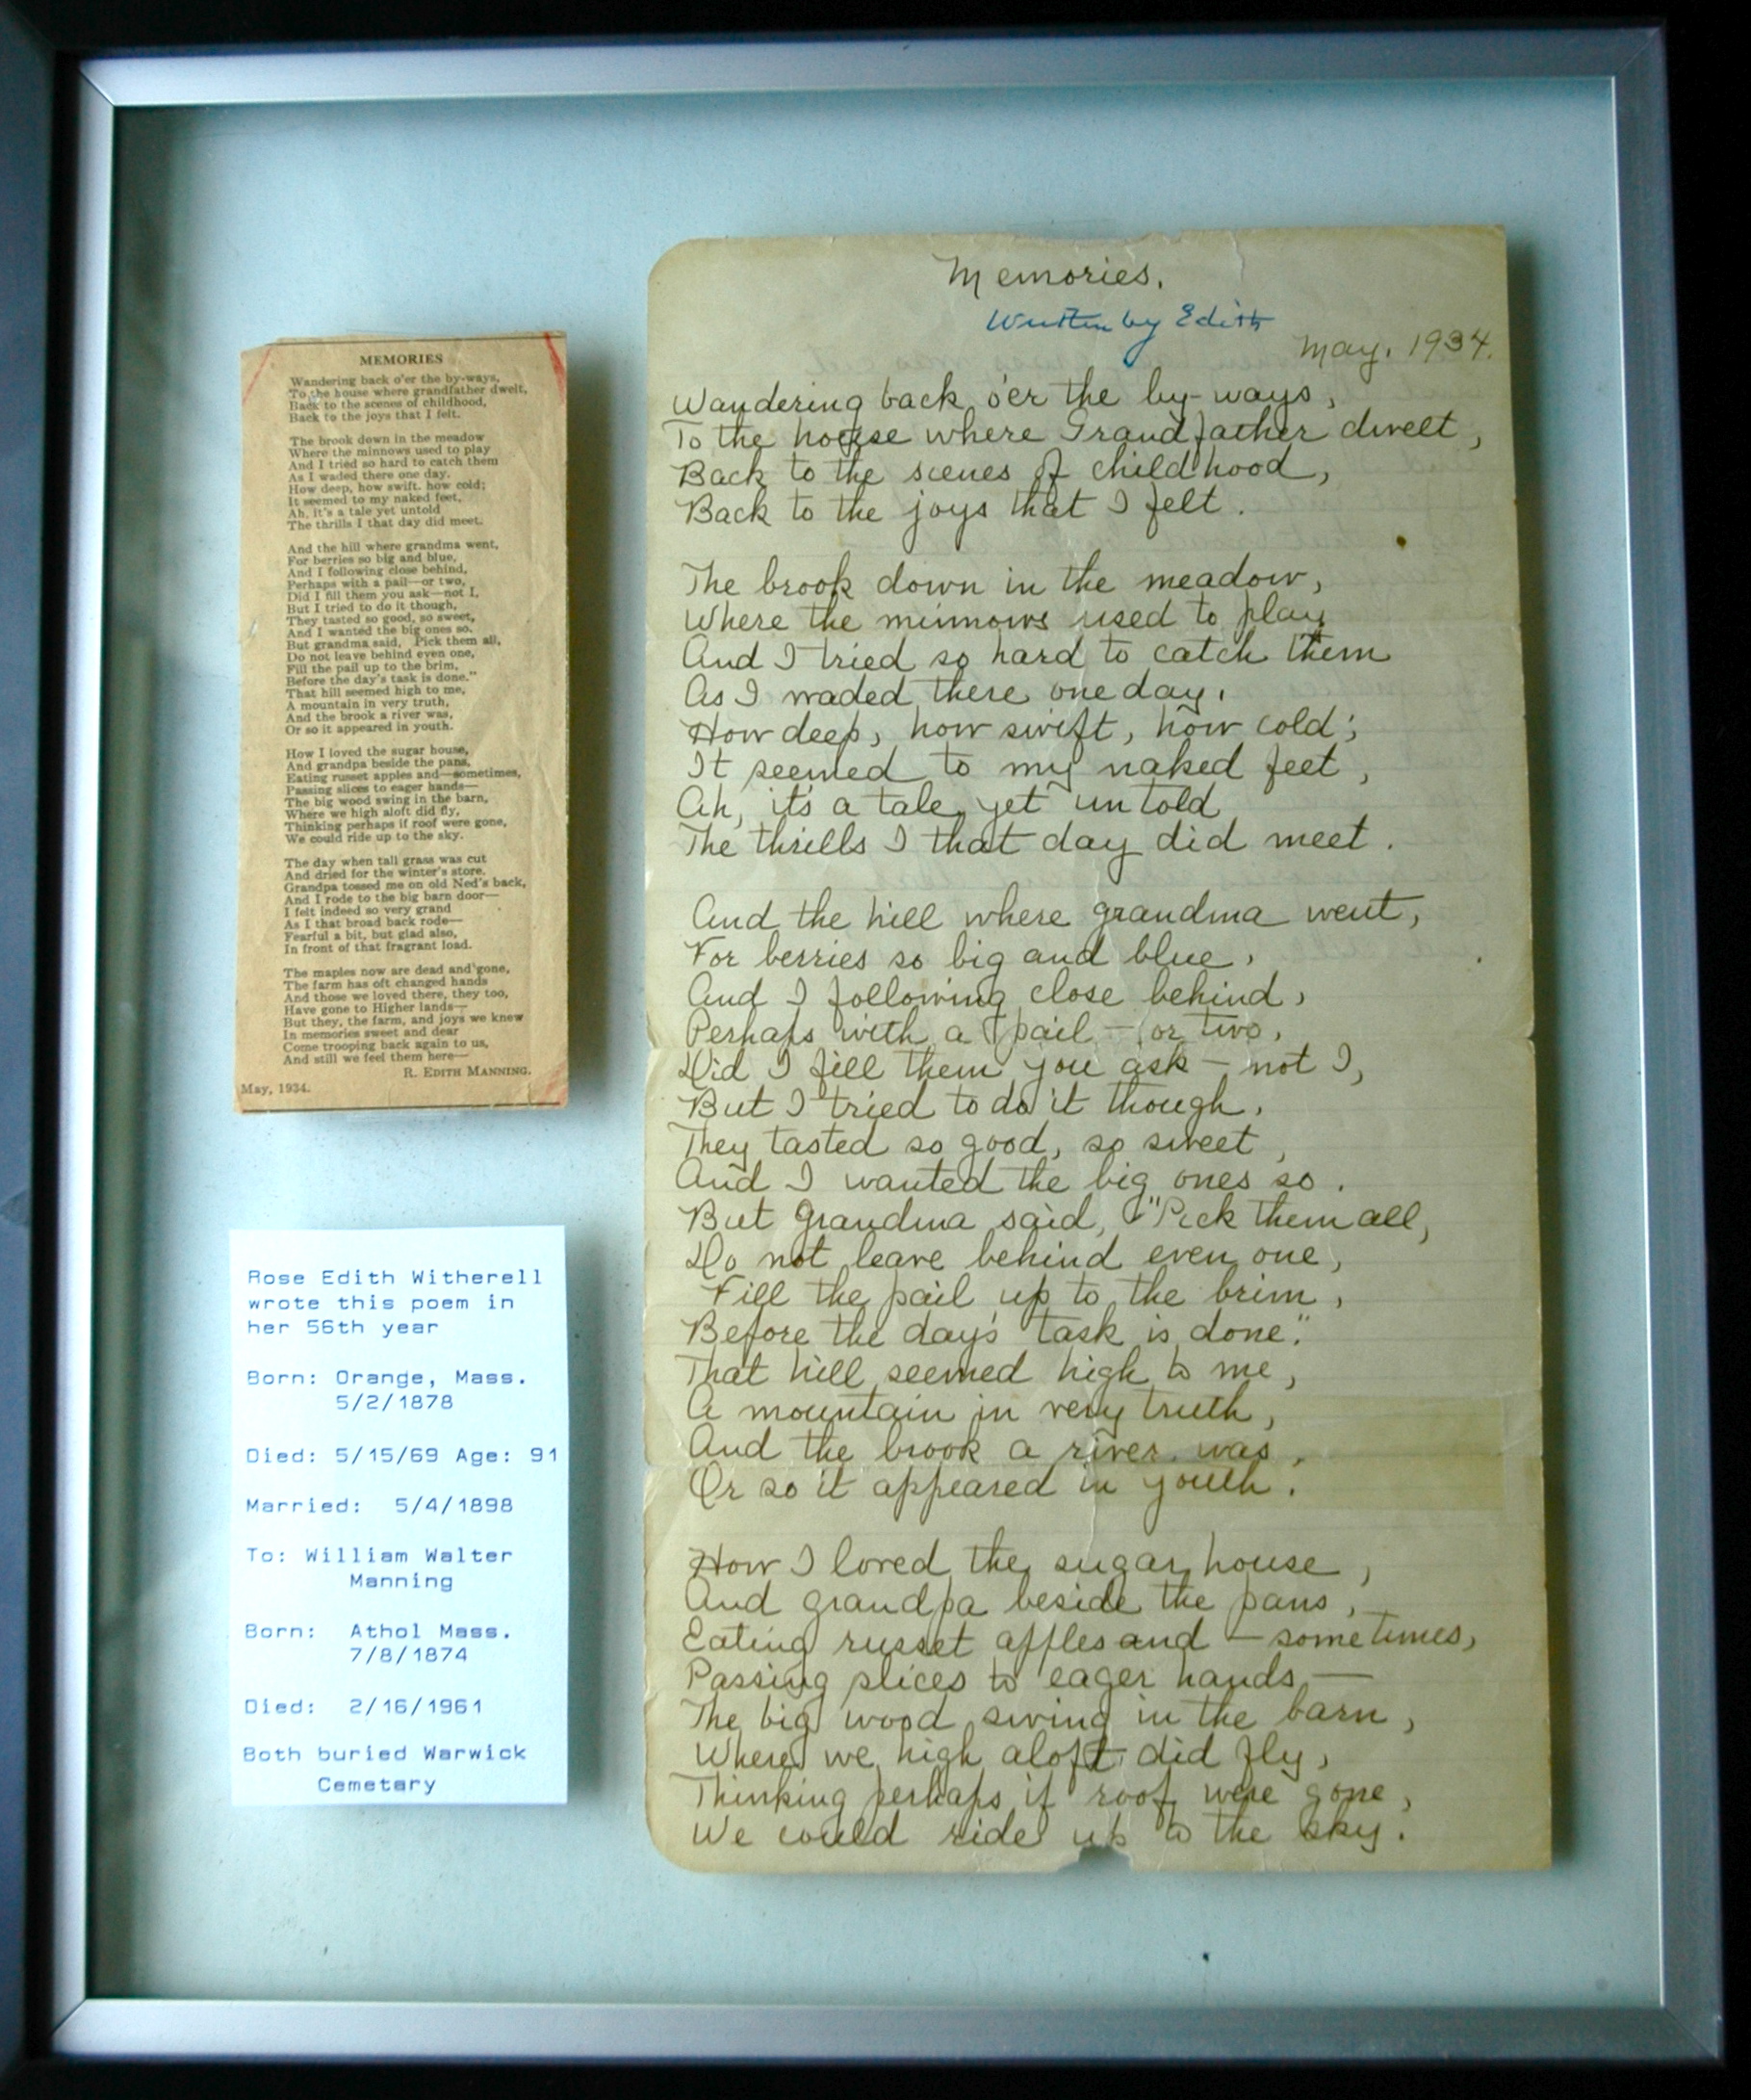 MEMORIES
Wandering back o'er the by-ways,
To the house where grandfather dwelt,
Back to the scenes of childhood,
Back to the joys that I felt.
The brook down in the meadow
Where the minnows used to play
And I tried so hard to catch them
As I waded there one day.
How deep, how swift. how cold;
It seemed to my naked feet,
Ah, it's a tale yet untold
The thrills I that day did meet.
And the hill where grandma went,
For berries so big and blue,
And I following close behind,
Perhaps with a pail—or two,
Did I fill them you ask—not I,
But I tried to do it though,
They tasted so good, so sweet,
And I wanted the big ones so.
But grandma said, Pick them all,
Do not leave behind even one,
Fill the pail up to the brim,
Before the day's task is done."
That hill seemed high to me,
A mountain in very truth,
And the brook a river was,
Or so it appeared in youth.
How I loved the sugar house,
And grandpa beside the pans,
Eating russet apples and—sometimes,
Passing slices to eager hands—
The big wood swing in the barn,
Where we high aloft did fly,
Thinking perhaps if roof were gone,
We could ride up to the sky.
The day when tall grass was cut
And dried for the winter's store.
Grandpa tossed me on old Ned's back,
And I rode to the big barn door—
I felt indeed so very grand
As I that broad back rode—
Fearful a bit, but glad also,
In front of that fragrant load.
The maples now are dead and gone,
The farm has oft changed hands
And those we loved there, they too,
Have gone to Higher lands—
But they, the farm, and joys we knew
In memories sweet and dear
Come trooping back again to us,
And still we feel them here—
R. EDITH MANNING.
May, 1934.
Rose Edith Witherell
wrote this poem in
her 56th year
Born: Orange, Mass.
5/2/1878
Died: 5/15/69 Age: 91
Married: 5/4/1898
To: William Walter
Manning
Born: Athol Mass.
7/8/1874
Died: 2/16/1961
Both buried Warwick
Cemetary
Memories.
Written by Edith
May, 1934.
Wandering back o'er the by-ways,
To the house where Grandfather dwelt,
Back to the scenes of childhood,
Back to the joys that I felt.
The brook down in the meadow,
Where the minnows used to play
And I tried so hard to catch them
As I waded there one day.
How deep, how swift, how cold;
It seemed to my naked feet,
Ah, it's a tale yet untold
The thrills I that day did meet.
And the hill where grandma went,
For berries so big and blue,
And I following close behind,
Perhaps with a pail — or two,
Did I fill them you ask — not I,
But I tried to do it though,
They tasted so good, so sweet,
And I wanted the big ones so.
But Grandma said, "Pick them all,
Do not leave behind even one,
Fill the pail up to the brim,
Before the day's task is done."
That hill seemed high to me,
A mountain in very truth,
And the brook a river was,
Or so it appeared in youth.
How I loved the sugar house,
And grandpa beside the pans,
Eating russet apples and — sometimes,
Passing slices to eager hands —
The big wood swing in the barn,
Where we high aloft did fly,
Thinking perhaps if roof were gone,
We could ride up to the sky.